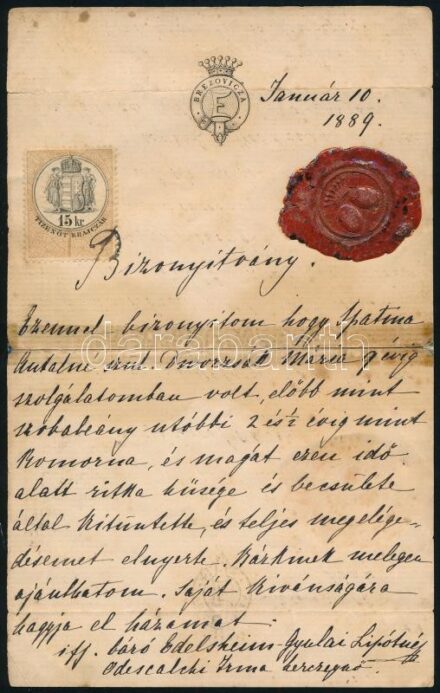 BREZOVICZA
Január 10.
1889.
15 kr
TIZENÖT KRAJCZÁR
Bizonyitvány.
Ezennel bizonyitom hogy Patina
Antalné szül. Dworzsak Mária 9 évig
darabanth
szolgálatomban volt, előbb mint
szobaleány utóbbi 2 és ½ évig mint
Komorna, és magát ezen idő
alatt ritka hűsége és becsülete
által kitüntette, és teljes megelége-
désemet elnyerte. Bárkinek melegen
ajánlhatom. Saját kivánságára
hagyja el házamat.
ifj. báró Edelsheim-Gyulai Lipótné
Odescalchi Irma herczegnő